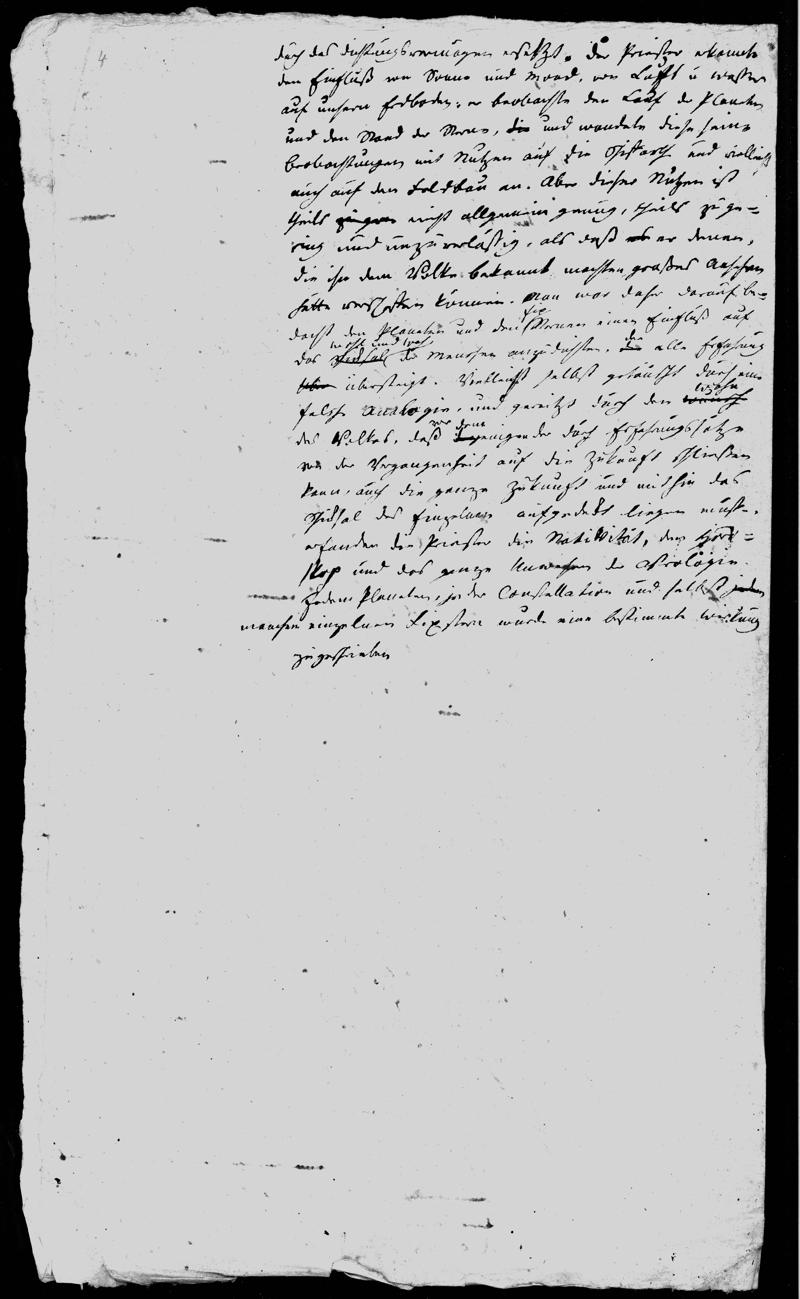 4
durch das Dichtungsvermögen ersetzt. Der Priester erkannte
den Einfluß von Sonne und Mond, von Luft u Wasser
auf unsern Erdboden; er beobachtete den Lauf der Planeten
und den Stand der Sterne, die und wandete diese seine
Beobachtungen mit Nutzen auf die Schiffarth und vielleicht
auch auf den Feldbau an. Aber dieser Nutzen ist
theils nicht allgemein genug, theils zu ge=
ring und unzuverlässig, als daß er denen,
die ihn dem Volke bekannt machten, großes Ansehen
hätte verschaffen können. Man war daher darauf be=
dacht den Planeten und den Fix Sternen einen Einfluß auf
das Wohl und Weh der Menschen anzudichten, der alle Erfahrung
über übersteigt. Vielleicht selbst getäuscht durch eine
falsche Analogie, und gereitzt durch den Wunsch Wahn
des Volkes, daß wer dem jenigen der durch Erfahrungssätze
von der Vergangenheit auf die Zukunft schließen
kann, auch die ganze Zukunft und mithin das
Schiksal des Einzelnen aufgedekt liegen müste,
erfanden die Priester die Nativität, den Horo=
skop und das ganze Unwesen der Astrologie.
Jedem Planeten, jeder Constellation und selbst jedem
manchen einzelnen Fixstern wurde eine bestimmte Wirkung
zugeschrieben